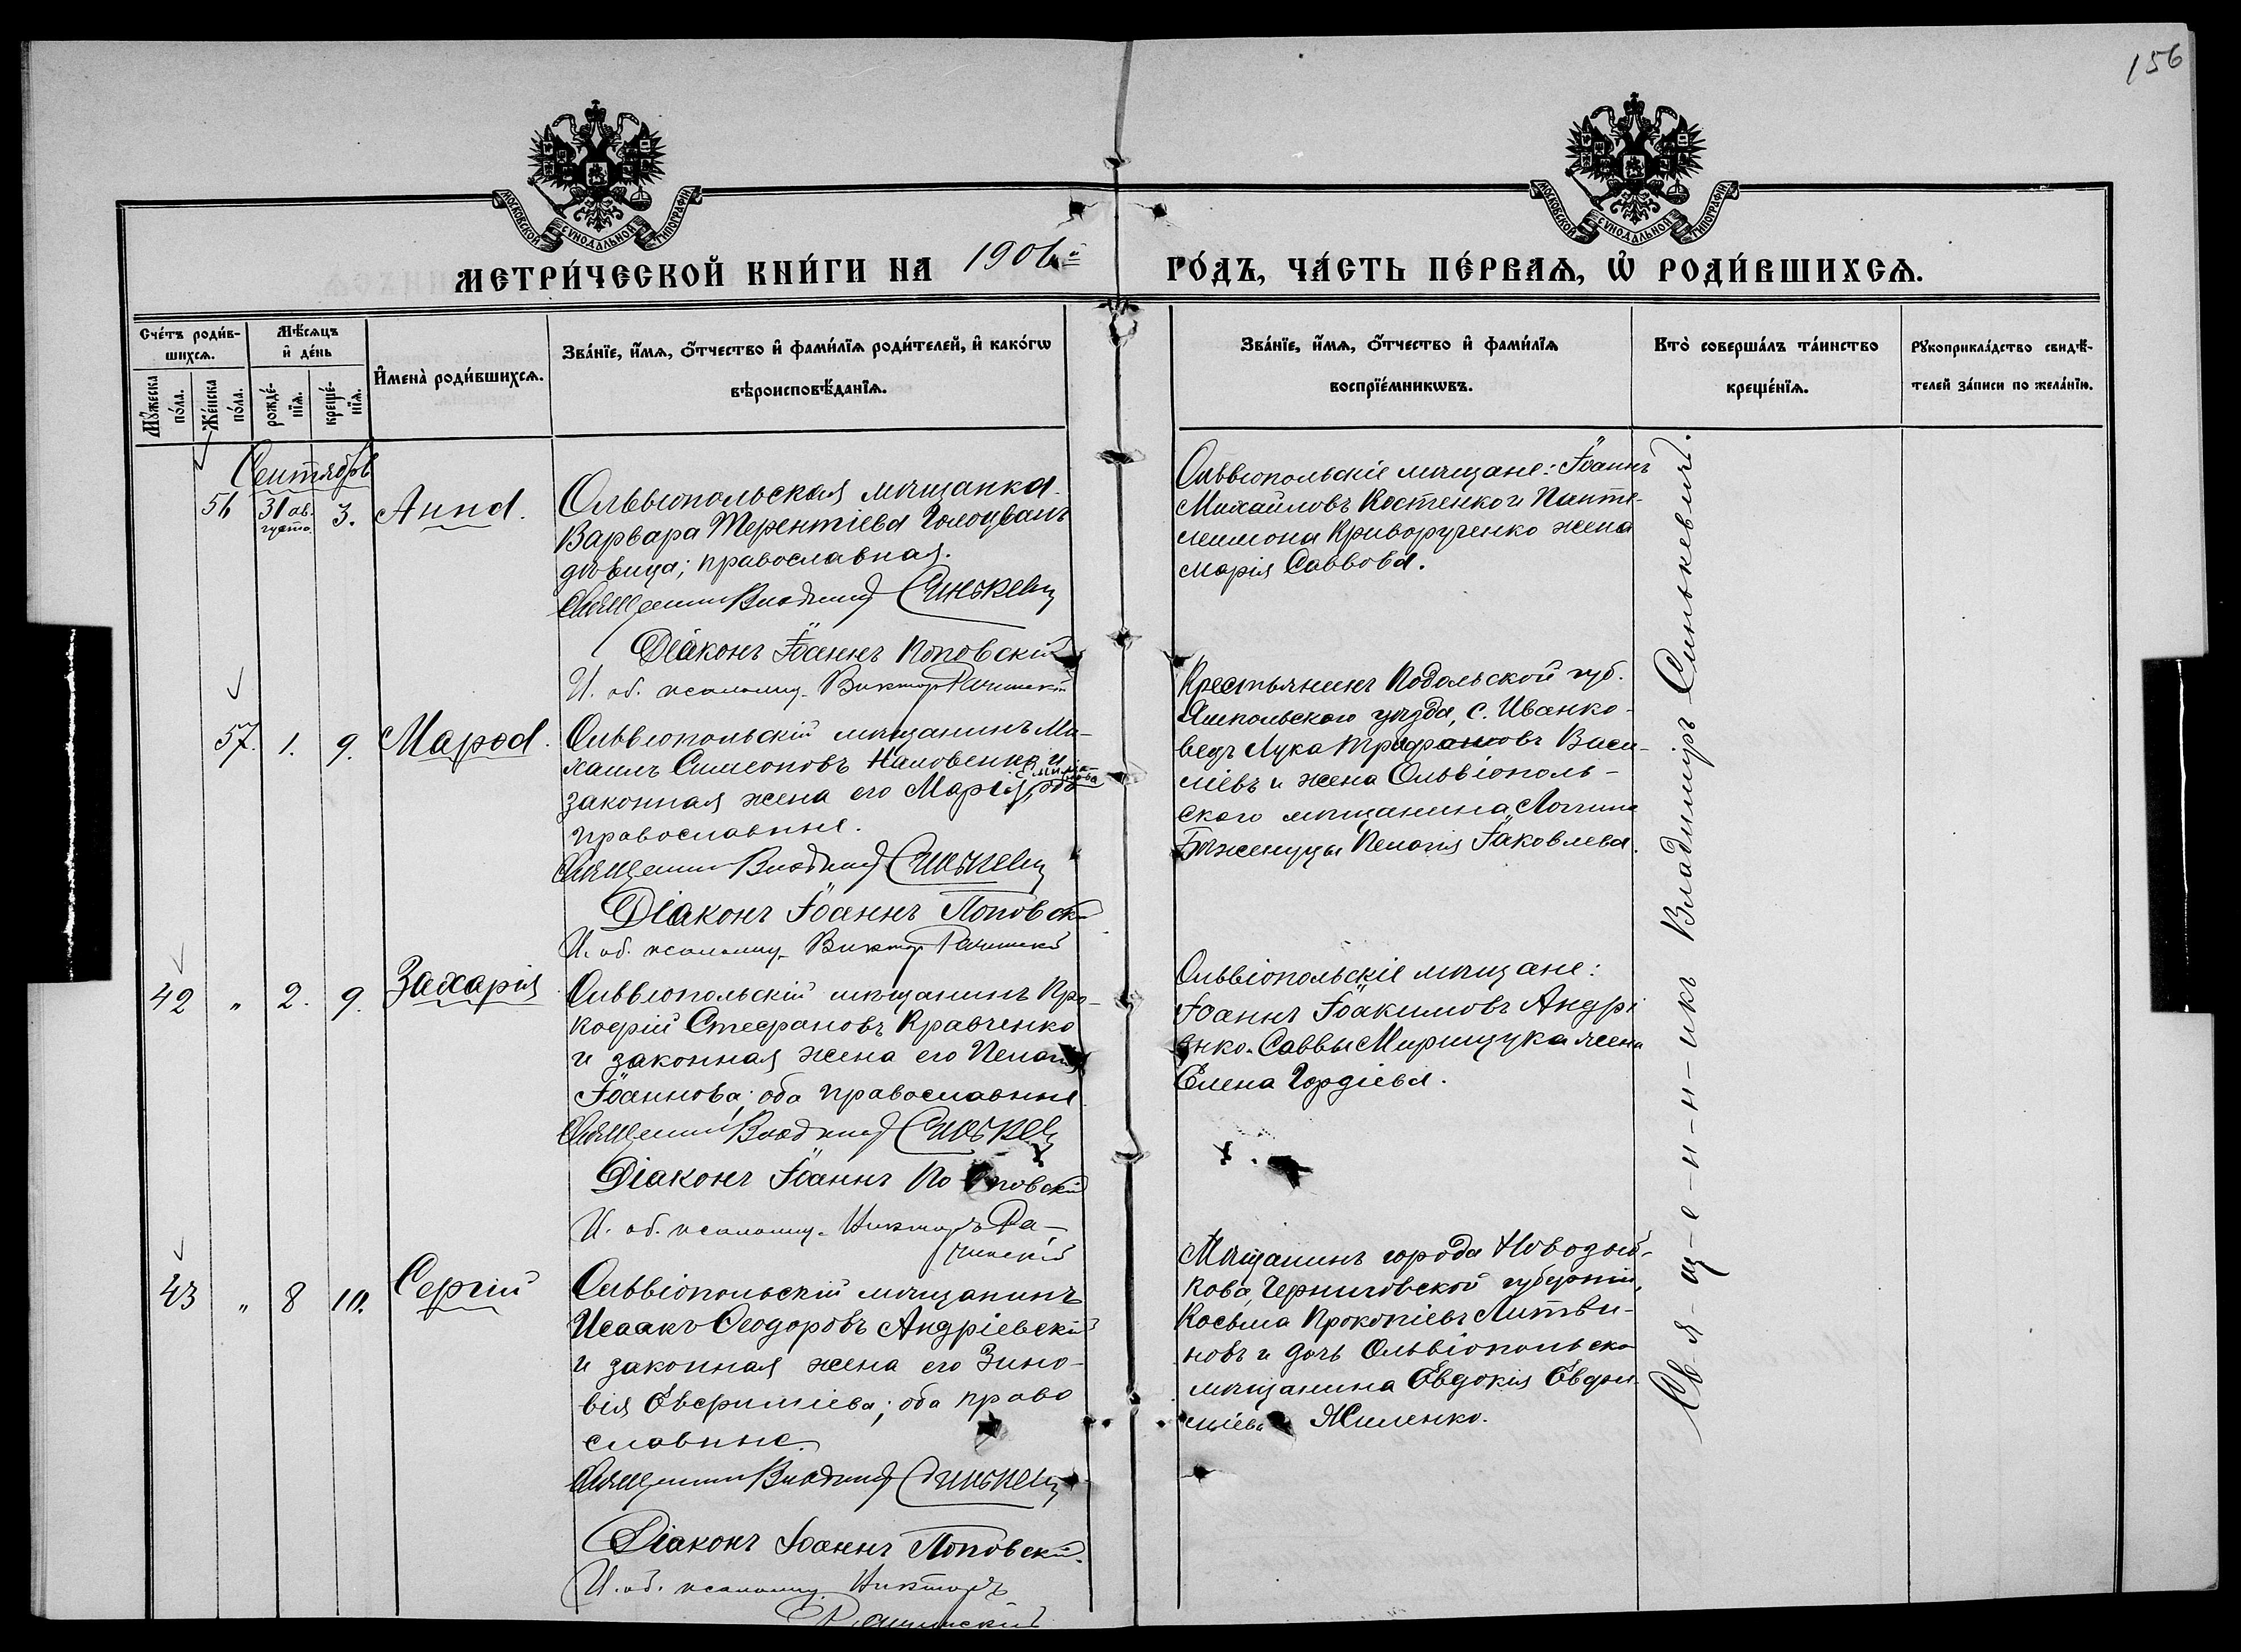 156
МОСКОВСКОЙ СѴНОДАЛЬНОЙ ТИПОГРАФІИ
МОСКОВСКОЙ СѴНОДАЛЬНОЙ ТИПОГРАФІИ
МЕТРИ́ЧЕСКОЙ КНИ́ГИ НА 190 ГО́ДЪ, ЧА́СТЬ ПЕ́РВАѦ, Ѡ҆ РОДИ́ВШИХСѦ.
Сче́тъ роди́в-
шихсѧ.
Мꙋ́жеска по́ла.
Же́нска по́ла.
Мѣ́сѧцъ
и҆ де́нь
рожде́-
нїѧ.
креще́-
нїѧ.
И҆мена̀ роди́вшихсѧ.
Зва́нїе, и҆́мѧ, ѻ҆́тчество и҆ фами́лїѧ роди́телей, и҆ како́гѡ
вѣроисповѣ́данїѧ.
Зва́нїе, и҆́мѧ, ѻ҆́тчество и҆ фами́лїѧ
воспрїе́мникѡвъ.
Кто̀ соверша́лъ та́инство
креще́нїѧ.
Рꙋкоприкла́дство свидѣ́-
телей за́писи по жела́нїю.
Сентябрь
56 31 ав-
густа. 3. Анна.
Ольвіопольская мѣщанка
Варвара Терентіева Голоцванъ
дѣвица; православная.
Священникъ Владимір Синькевич
Діаконъ Іоаннъ Поповскій
И. об. псаломщ. Виктор Рачинскій
Ольвіопольскіе мѣщане: Іоаннъ
Михайловъ Костенко и Панте-
леимона Криворученко жена
Марія Саввова.
57. 1. 9. Мароа.
Ольвіопольскій мѣщанинъ Ми-
хаилъ Симеоновъ и
законная жена его Марія оба
православные.
Священникъ Владимір Синькевич
Діаконъ Іоаннъ Поповск
И. об. псаломщ. Виктор Рачинскій
Крестьянинъ Подольской губ.
Ямпольскаго уѣзда, с. Иванко-
вецъ Лука Васи-
ліевъ и жена Ольвіополь-
скаго мѣщанина Логгина
Пелагія Іаковлева.
42 " 2. 9. Захарія
Ольвіопольскій мѣщанинъ Про-
кофій Стефановъ Кравченко
и законная жена его Пелагія
Іоаннова; оба православные
Священникъ Владимір Синькевич
Діаконъ Іоаннъ Поповскій
И. об. псаломщ. Викторъ Ра-
чинскій
Ольвіопольскіе мѣщане:
Іоаннъ Іоакимовъ Андрі
енко. Саввы Мирищука жена
Елена Гордіева.
43 " 8 10. Сергій
Ольвіопольскій мѣщанинъ
Исаакъ Ѳеодоровъ Андріевскій
и законная жена его Зино-
вія Евфиміева; оба право
славные.
Священникъ Владимір Синькевич
Діаконъ Іоаннъ Поповскій.
И. об. псаломщ. Викторъ
Рачинскій
Мѣщанинъ города Новозыб-
кова, Черниговской губерніи,
Косьма Прокопіевъ Литви-
новъ и дочь Ольвіопольско
мѣщанина Евдокія Евфи-
міева Жиленко.
Свя-щ-е-н-н-икъ Владиміръ Синькевичъ.